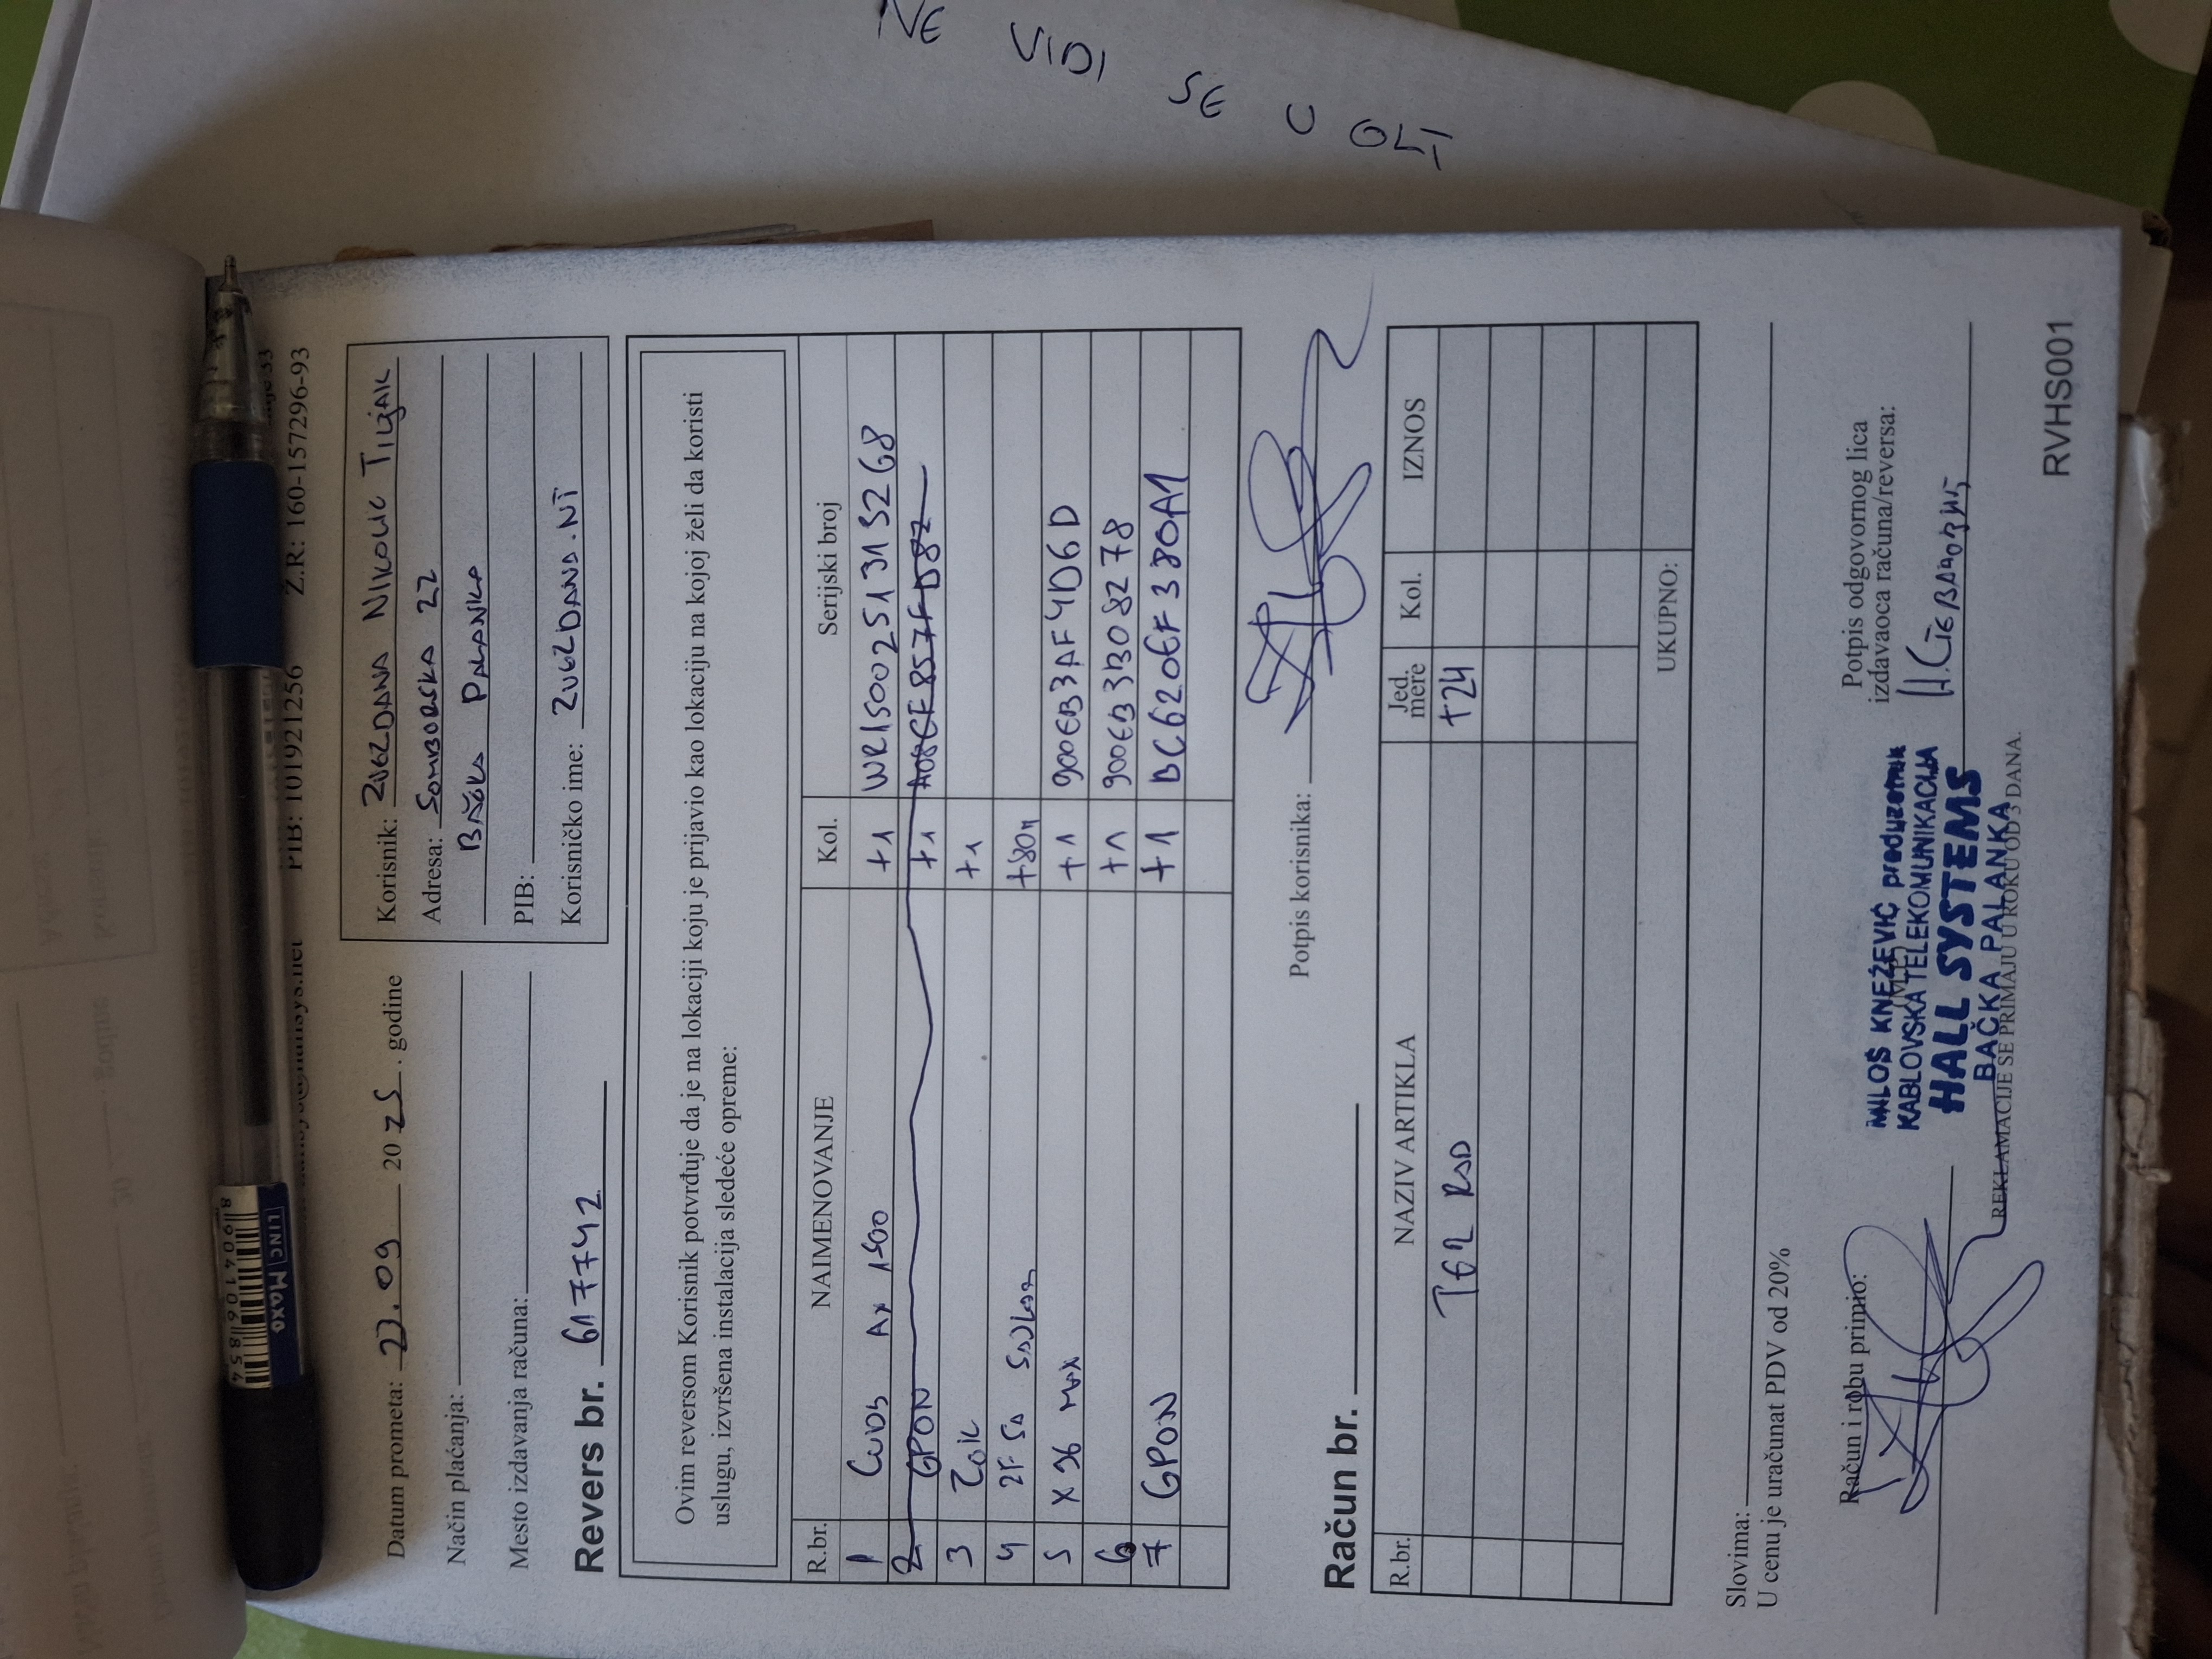 NE VIDI SE U OLT
PIB: 101921256 Ž.R: 160-157296-93
Datum prometa: 23.09 2025. godine
Način plaćanja:
Mesto izdavanja računa:
Korisnik: ZVEZDANA NIKOLIC TILJAK
Adresa: SOMBORSKA 22
BAČKA PALANKA
PIB:
Korisničko ime: ZVEZDANA.NT
Revers br. 617742
Ovim reversom Korisnik potvrđuje da je na lokaciji koju je prijavio kao lokaciju na kojoj želi da koristi
uslugu, izvršena instalacija sledeće opreme:
R.br. NAIMENOVANJE Kol. Serijski broj
1 CUDY AX 1500 +1 WR1500251315268
2 GPON +1 A08CF857FD87
3 ZOK +1
4 2F SA +80m
5 X96 MAX +1 900EB3AF4D6D
6 +1 900EB3B08278
7 GPON +1 BC6206EF380A1
Potpis korisnika:
Račun br.
R.br. NAZIV ARTIKLA Jed. mere Kol. IZNOS
T62 RSD +24
UKUPNO:
Slovima:
U cenu je uračunat PDV od 20%
Račun i robu primio:
MILOŠ KNEŽEVIĆ preduzetnik
KABLOVSKA TELEKOMUNIKACIJA
HALL SYSTEMS
BAČKA PALANKA
Potpis odgovornog lica
izdavaoca računa/reversa:
REKLAMACIJE SE PRIMAJU U ROKU OD 3 DANA.
RVHS001
LINC Maxo
8904106854